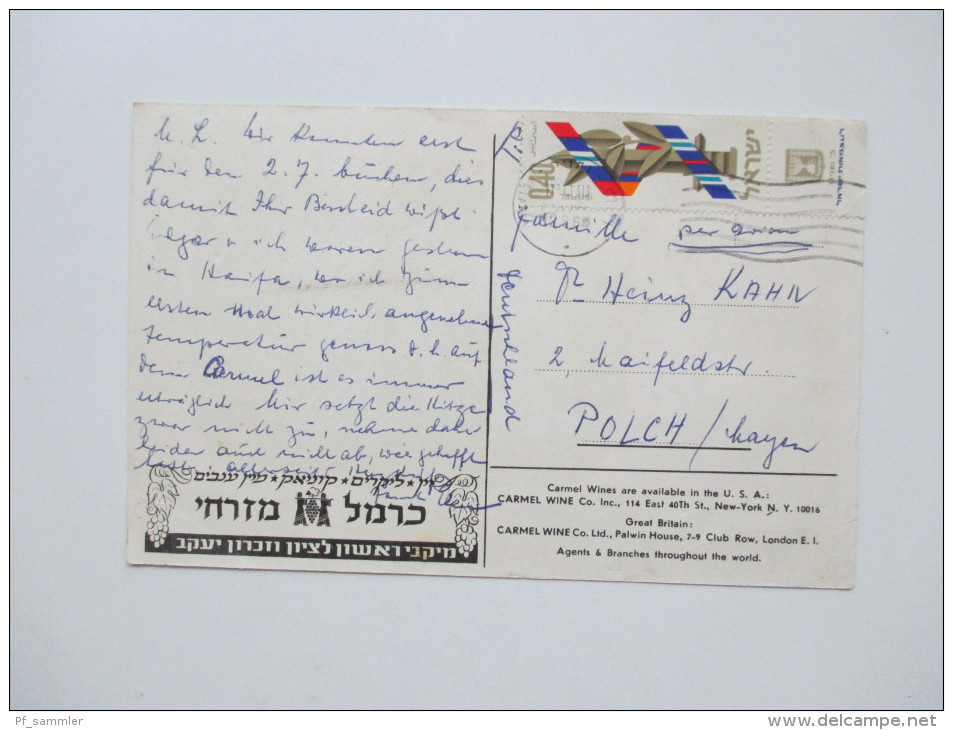 M. L. Wir konnten erst
für den 2. 7. buchen, dies
damit Ihr Bescheid wißt
u ich waren gestern
in Haifa, wo ich zum
ersten Mal wirklich angenehme
Temperatur genoss d. h. auf
dem Carmel ist es immer
erträglich Mir setzt die Hitze
zwar nicht zu, nehme daher
leider auch nicht ab, wie gehofft
יין★ליקרים★קוניאק★מיץ ענבים
כרמל מזרחי
מיקבי ראשון לציון וזכרון יעקב
ישראל
0.40
Familie
per avion
Heinz KAHN
2, Maifeldstr.
POLCH / Mayen
Deutschland
Carmel Wines are available in the U. S. A.:
CARMEL WINE Co. Inc., 114 East 40Th St., New-York N. Y. 10016
Great Britain:
CARMEL WINE Co. Ltd., Palwin House, 7-9 Club Row, London E. I.
Agents & Branches throughout the world.
Pf_sammler
delcampe.net